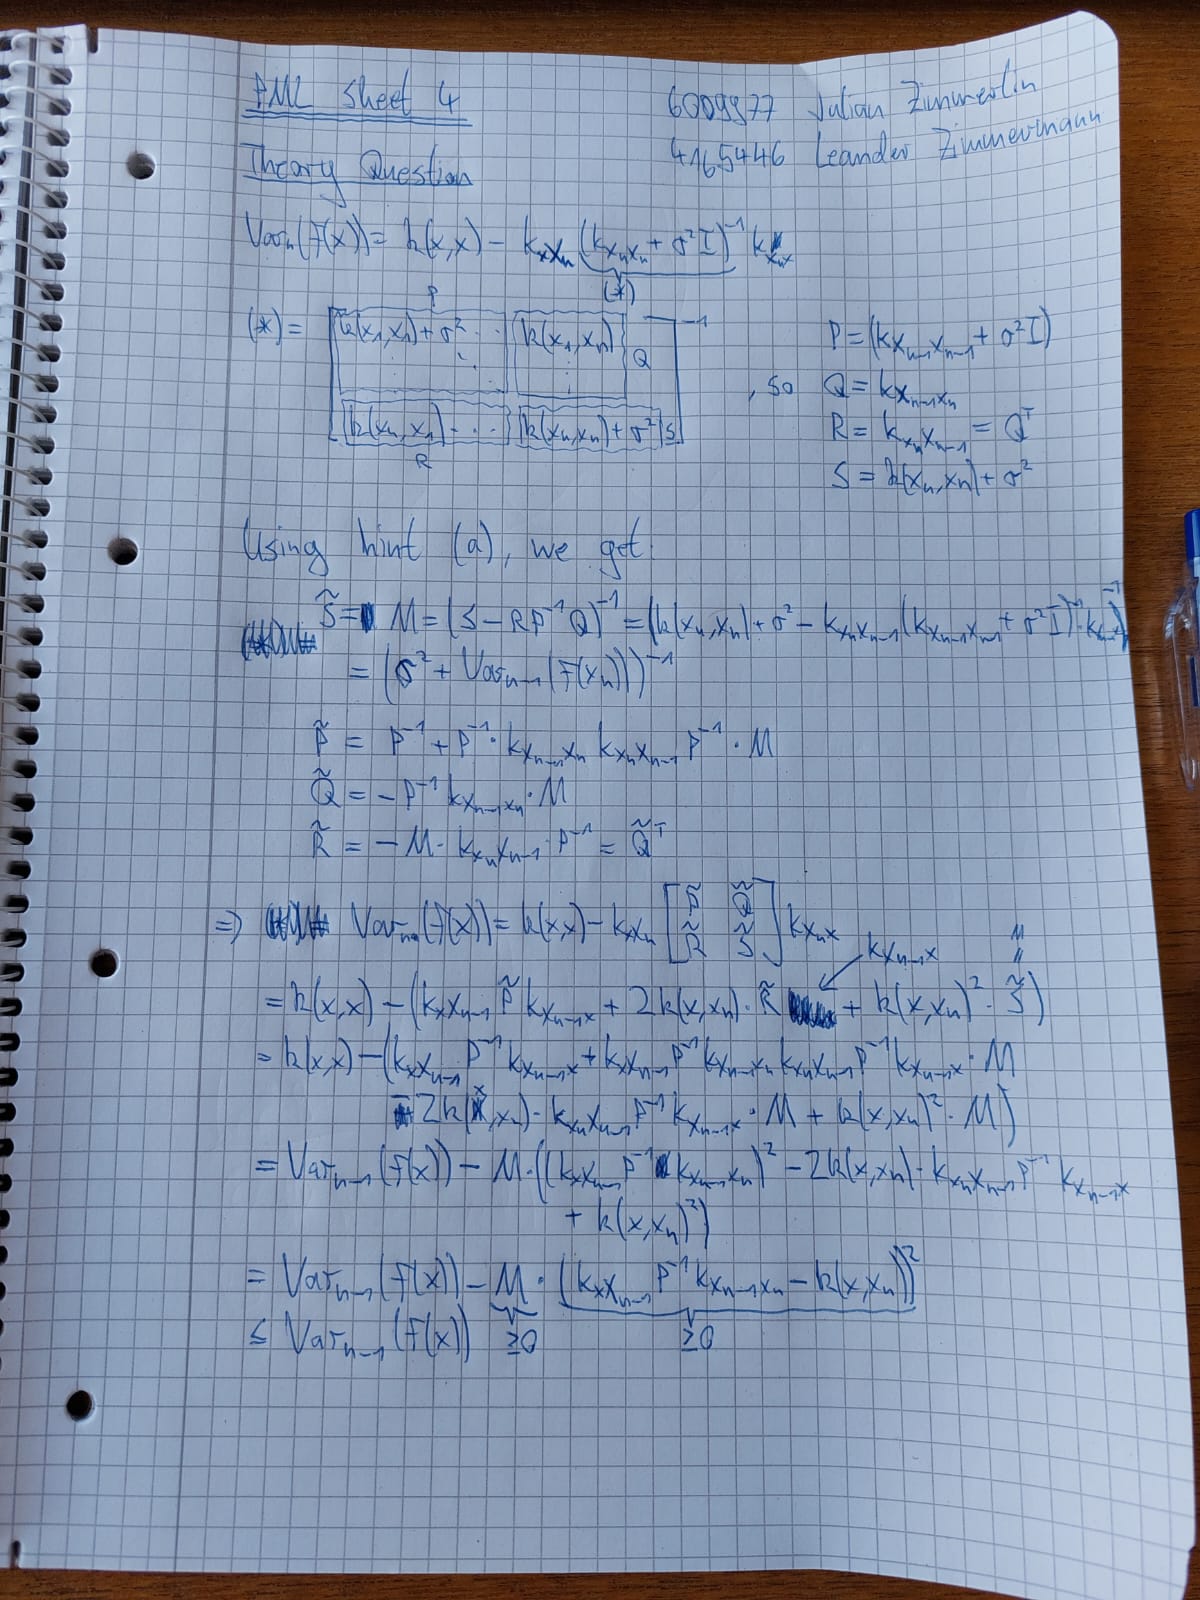 PML Sheet 4 6009977 Julian Zimmerlin
Theory Question 4165446 Leander Zimmermann
Varₙ(f(x)) = k(x,x) − k_{xXₙ} (k_{XₙXₙ} + σ²I)⁻¹ k_{Xₙx}
(*)
P
(*) = [k(x₁,x₁)+σ² ⋯ k(x₁,xₙ) Q]⁻¹ P = (k_{Xₙ₋₁Xₙ₋₁} + σ²I)
⋮ ⋱ ⋮ , so Q = k_{Xₙ₋₁xₙ}
[k(xₙ,x₁) ⋯ k(xₙ,xₙ)+σ² S] R = k_{xₙXₙ₋₁} = Qᵀ
R S = k(xₙ,xₙ) + σ²
Using hint (a), we get:
S̃ = M = (S − RP⁻¹Q)⁻¹ = (k(xₙ,xₙ) + σ² − k_{xₙXₙ₋₁} (k_{Xₙ₋₁Xₙ₋₁} + σ²I)⁻¹
= (σ² + Varₙ₋₁(f(xₙ)))⁻¹
P̃ = P⁻¹ + P⁻¹ · k_{Xₙ₋₁xₙ} k_{xₙXₙ₋₁} P⁻¹ · M
Q̃ = −P⁻¹ k_{Xₙ₋₁xₙ} · M
R̃ = −M · k_{xₙXₙ₋₁} · P⁻¹ = Q̃ᵀ
⇒ Varₙ(f(x)) = k(x,x) − k_{xXₙ} [P̃ Q̃
R̃ S̃] k_{Xₙx} k_{Xₙ₋₁x} M
= k(x,x) − (k_{xXₙ₋₁} P̃ k_{Xₙ₋₁x} + 2k(x,xₙ) · R̃ + k(x,xₙ)² · S̃)
= k(x,x) − (k_{xXₙ₋₁} P⁻¹ k_{Xₙ₋₁x} + k_{xXₙ₋₁} P⁻¹ k_{Xₙ₋₁xₙ} k_{xₙXₙ₋₁} P⁻¹ k_{Xₙ₋₁x} · M
− 2k(x,xₙ) · k_{xₙXₙ₋₁} P⁻¹ k_{Xₙ₋₁x} · M + k(x,xₙ)² · M)
= Varₙ₋₁(f(x)) − M · ((k_{xXₙ₋₁} P⁻¹ k_{Xₙ₋₁xₙ})² − 2k(x,xₙ) · k_{xₙXₙ₋₁} P⁻¹ k_{Xₙ₋₁x}
+ k(x,xₙ)²)
= Varₙ₋₁(f(x)) − M · (k_{xXₙ₋₁} P⁻¹ k_{Xₙ₋₁xₙ} − k(x,xₙ))²
≤ Varₙ₋₁(f(x)) ≥0 ≥0